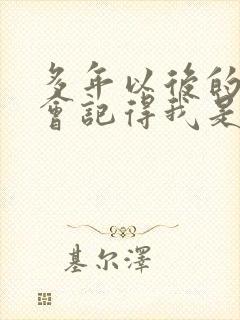 多年以後的
會記得我是
基尔澤